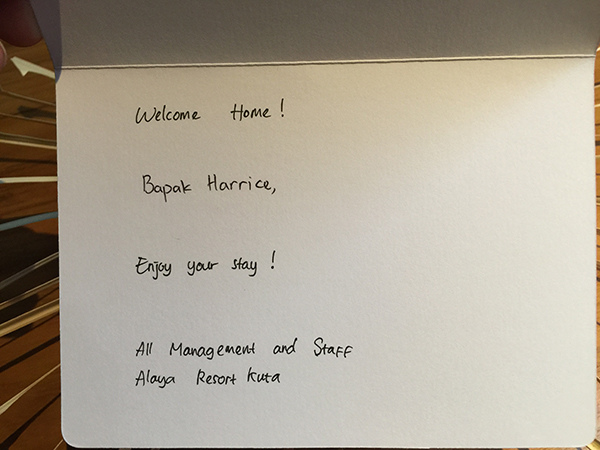 Welcome Home!
Bapak Harrice,
Enjoy your stay!
All Management and Staff
Alaya Resort Kuta